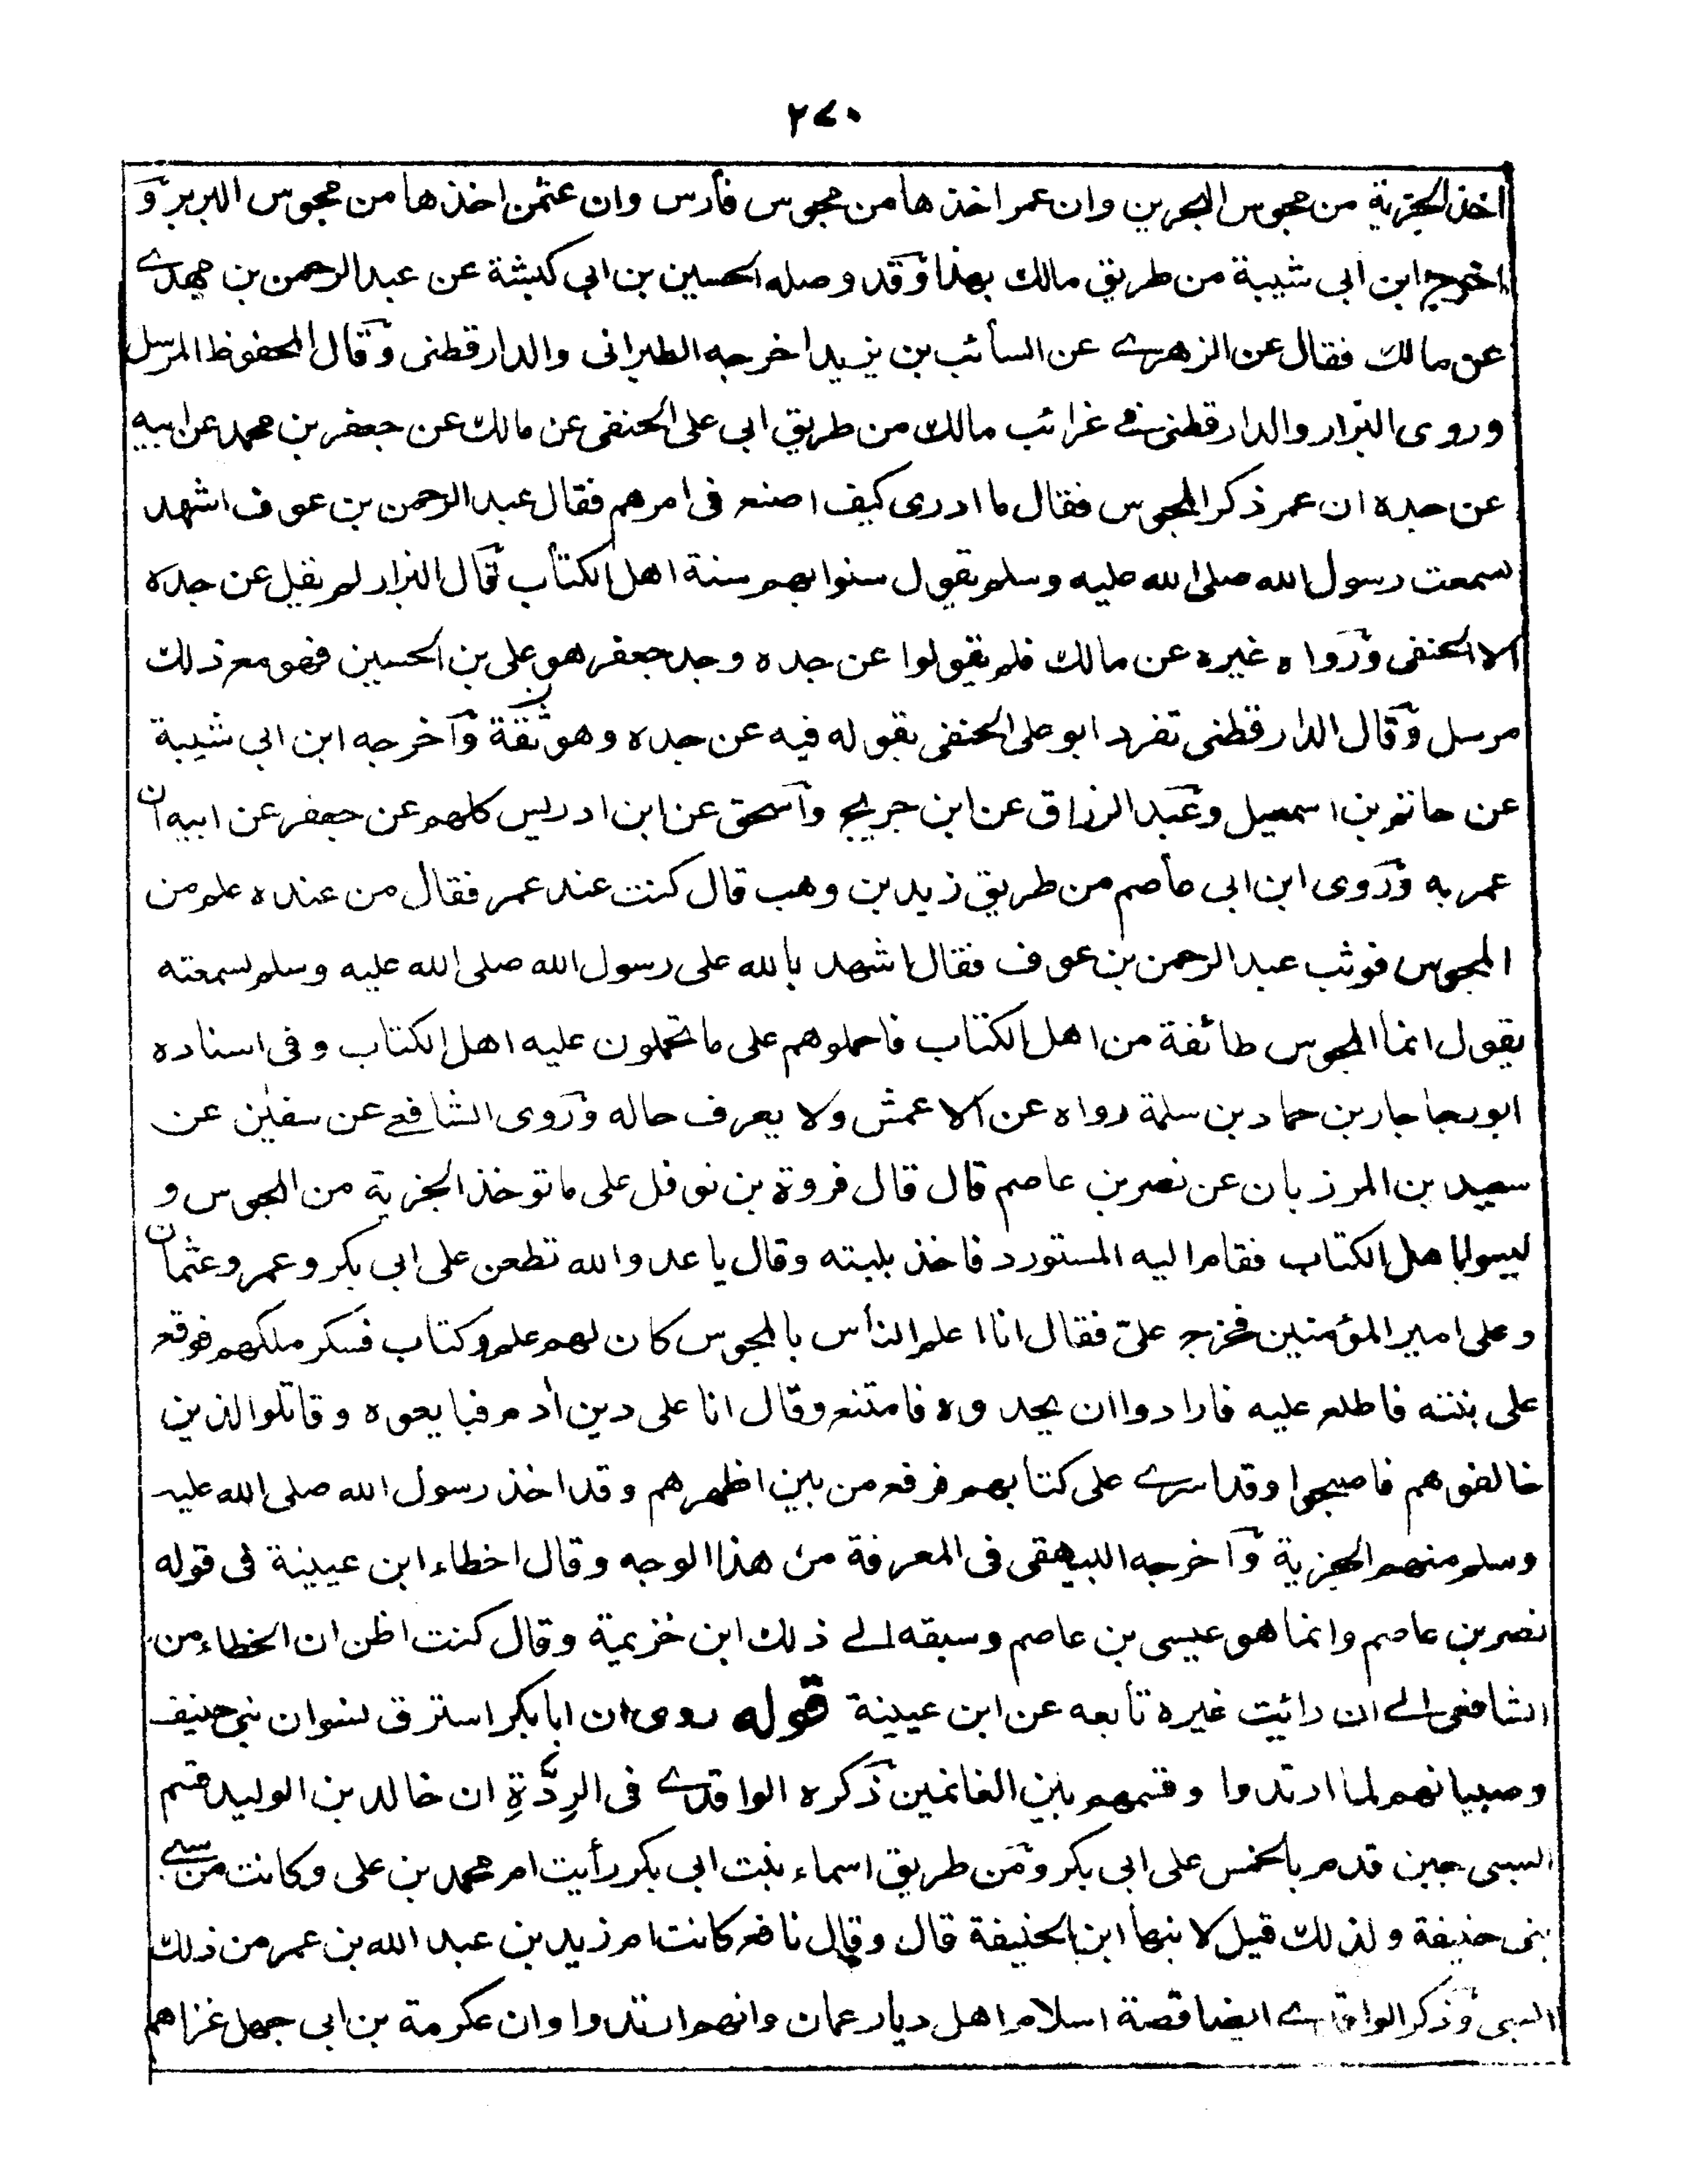 ٢٧٠
اخذ الجزية من مجوس البحرين وان عمر اخذها من مجوس فارس وان عثمن اخذها من مجوس البربر و
اخرج ابن ابى شيبة من طريق مالك بهذا وقد وصله الحسين بن ابى كبشة عن عبد الرحمن بن مهدے
عن مالك فقال عن الزهرے عن السائب بن يزيد اخرجه الطبرانى والدارقطنى وقال المحفوظ المرسل
وروى البزار والدارقطنى فے غرائب مالك من طريق ابى على الحنفى عن مالك عن جعفر بن محمد عن ابيه
عن جده ان عمر ذكر المجوس فقال ما ادرى كيف اصنع فى امرهم فقال عبد الرحمن بن عوف اشهد
لسمعت رسول الله صلى الله عليه وسلم يقول سنوا بهم سنة اهل الكتاب قال البزار لم يقل عن جده
الا الحنفى ورواه غيره عن مالك فلم يقولوا عن جده وجد جعفر هو على بن الحسين فهو مع ذلك
مرسل وقال الدارقطنى تفرد ابو على الحنفى بقوله فيه عن جده وهو ثقة واخرجه ابن ابى شيبة
عن حاتم بن اسمعيل وعبد الرزاق عن ابن جريج واسحق عن ابن ادريس كلهم عن جعفر عن ابيه ان
عمر به وروى ابن ابى عاصم من طريق زيد بن وهب قال كنت عند عمر فقال من عنده علم من
المجوس فوثب عبد الرحمن بن عوف فقال اشهد بالله على رسول الله صلى الله عليه وسلم لسمعته
يقول انما المجوس طائفة من اهل الكتاب فاحملوهم على ما تحملون عليه اهل الكتاب وفى اسناده
ابو رجا جار بن حماد بن سلمة رواه عن الاعمش ولا يعرف حاله وروى الشافعے عن سفين عن
سعيد بن المرزبان عن نصر بن عاصم قال قال فروة بن نوفل على ما توخذ الجزية من المجوس و
ليسوا باهل الكتاب فقام اليه المستورد فاخذ بلبته وقال يا عدو الله تطعن على ابى بكر وعمر وعثمان
وعلى امير المؤمنين فخرج علىّ فقال انا اعلم الناس بالمجوس كان لهم علم وكتاب فسكر ملكهم فوقع
على بنته فاطلع عليه فارادوا ان يحدوه فامتنع وقال انا على دين أدم فبايعوه وقاتلوا الذين
خالفوهم فاصبحوا وقد اسرے على كتابهم فرفع من بين اظهرهم وقد اخذ رسول الله صلى الله عليه
وسلم منهم الجزية واخرجه البيهقى فى المعرفة من هذا الوجه وقال اخطاء ابن عيينة فى قوله
نصر بن عاصم وانما هو عيسى بن عاصم وسبقه الے ذلك ابن خزيمة وقال كنت اظن ان الخطاء من
الشافعى الے ان رائيت غيره تابعه عن ابن عيينة قوله روى ان ابا بكر استرق نسوان بنى حنيف
وصبيانهم لما ارتدوا وقسمهم بين الغانمين ذكره الواقدے فى الرِدَّةِ ان خالد بن الوليد قسم
السبى حين قدم بالخمس على ابى بكر ومن طريق اسماء بنت ابى بكر رأيت ام محمد بن على وكانت من سبے
بنى حنيفة ولذلك قيل لابنها ابن الحنيفة قال وقال نافع كانت ام زيد بن عبد الله بن عمر من ذلك
السبى وذكر الواقدے ايضا قصة اسلام اهل ديار عمان وانهم ارتدوا وان عكرمة بن ابى جهل غزاهم